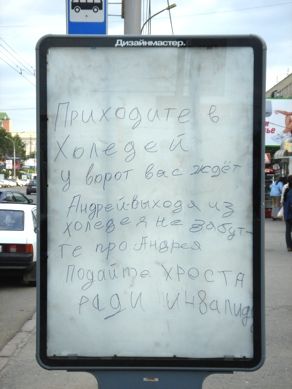 Дизайнмастер.
Приходите в
Холедей
у ворот вас ждёт
Андрей выходя из
холедея не забуть
те про Андрея
Подайте ХРОСТА
ради инвалиду